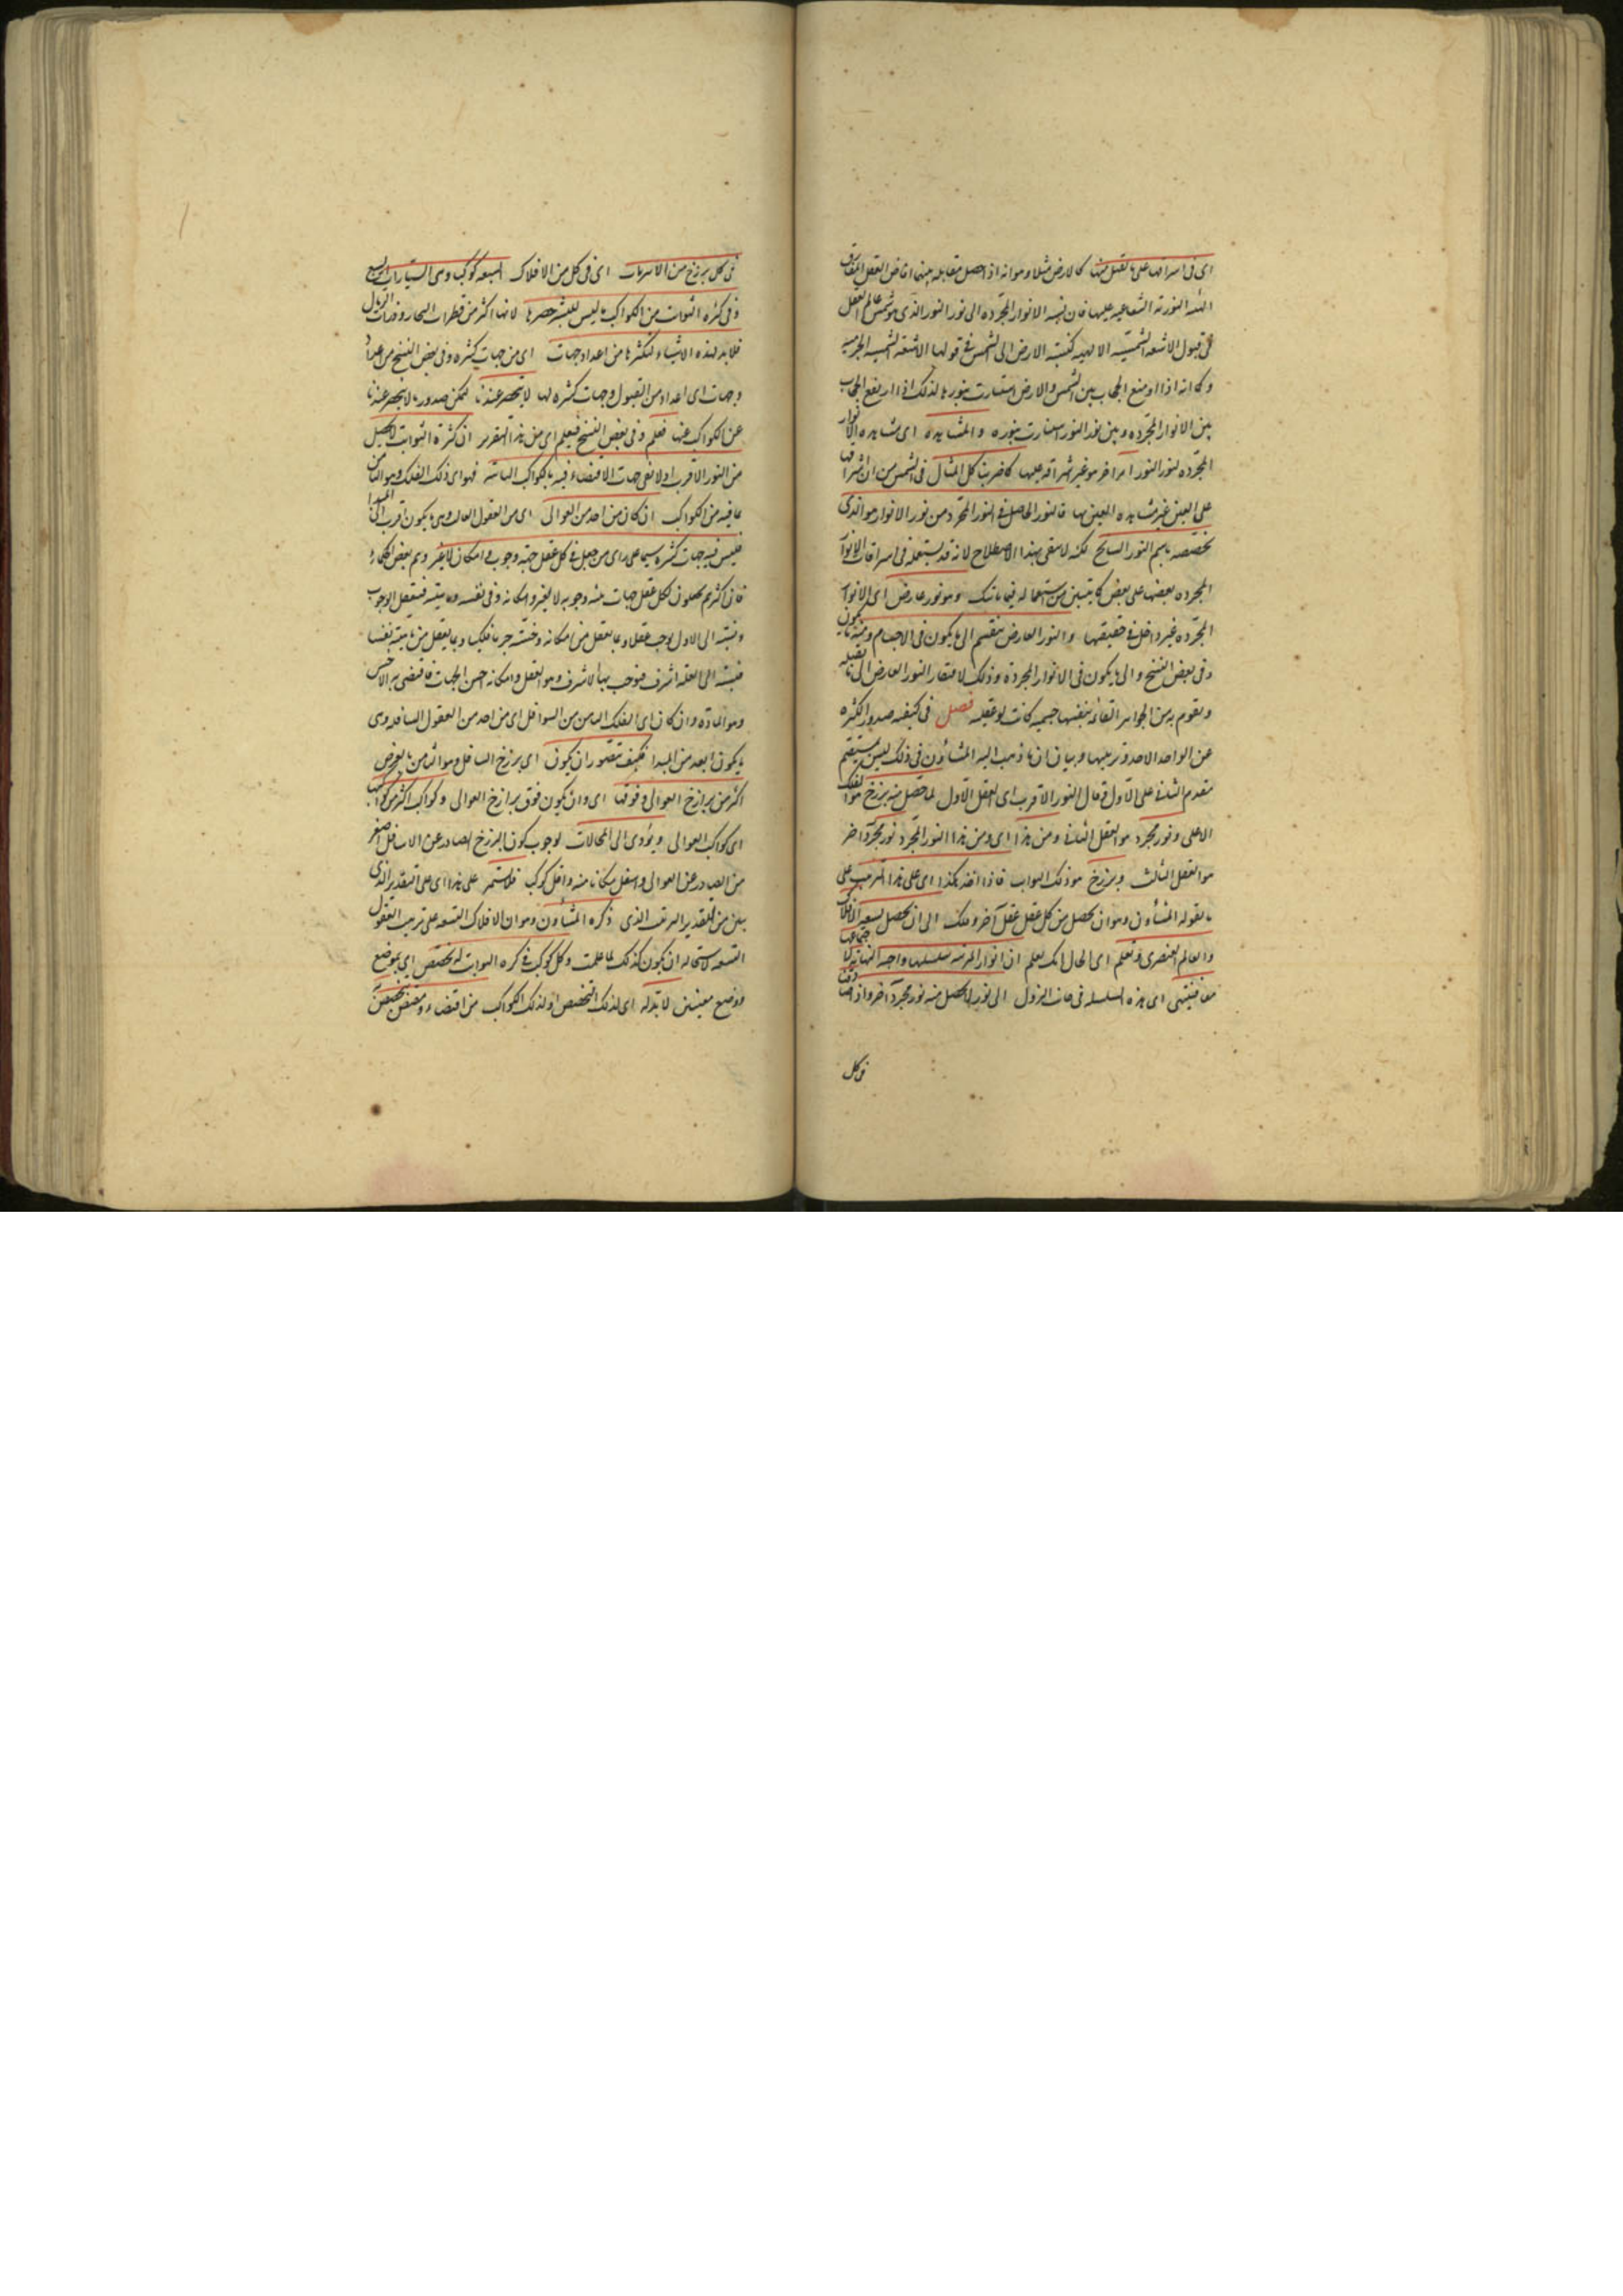 اى فى اشراقها على ما يقبل منها كالارض مثلا وهو انه اذا حصل مقابلة بينهما افاض العقل المفارق
الهيئة النورية الشعاعية عليها فان نسبة الانوار المجردة الى نور النور الذى هو شمس عالم العقل
فى قبول الاشعة الشمسية الالهية كنسبة الارض الى الشمس فى قبولها الاشعة الشمسية الجرمية
وكما انه اذا ارتفع الحجاب بين الشمس والارض استنارت بنورها لذلك اذا ارتفع الحجاب
بين الانوار المجردة وبين نور النور استنارت بنوره والمشاهدة اى مشاهدة الانوار
المجردة لنور النور امر اخر هو غير شراقه عليها كما ضربنا لك المثال فى الشمس من ان اشراقها
على العين غير مشاهدة العين لها فالنور الحاصل فى النور المجرد من نور الانوار هو الذى
نخصصه باسم النور السانح لكنه لا يبقى بهذا الاصطلاح لانه قد يستعمله فى اشراقات الانوار
المجردة بعضها على بعض كما يتبين من استعماله فيما ياتيك وهو نور عارض اى الانوار
المجردة غير داخل فى حقيقتها والنور العارض ينقسم الى ما يكون فى الاجسام ومنه ما يكون
وفى بعض النسخ والى ما يكون فى الانوار المجردة وذلك لافتقار النور العارض الى ما يقبله
ويقوم به من الجواهر القائمة بنفسها جسمية كانت او عقلية فصل فى كيفية صدور الكثرة
عن الواحد الاحد وترتيبها وبيان ان ما ذهب اليه المشاؤن فى ذلك ليس بمستقيم
مقدم الثانى على الاول وقال النور الاقرب اى العقل الاول لما حصل منه برزخ هو الفلك
الاعلى ونور مجرد هو العقل الثانى ومن هذا اى ومن هذا النور المجرد نور مجرد اخر
هو العقل الثالث وبرزخ هو فلك الثوابت فاذا اخذ هكذا اى على هذا الترتيب على
ما يقوله المشاؤن وهو ان يحصل من كل عقل عقل آخر وفلك الى ان يحصل تسعة الافلاك
والعالم العنصرى وتعلم اى الحال انك تعلم ان انوار المترتبة سلسلتها واجبة النهاية لاجتماعها
معا فينتهى اى هذه السلسلة فى جانب النزول الى نور لا يحصل منه نور مجرد اخر واذا صادفنا
وكل
فى كل برزخ من الاثيريات اى فى كل من الافلاك السبعة كوكب وهى السيارات السبع
وفى كرة الثوابت من الكواكب ما ليس للبشر حصرها لانها اكثر من قطرات البحار وذرات الرمال
فلا بد لهذه الاشياء لتكثرها من اعداد وجهات اى من جهات كثيرة وفى بعض النسخ من اعداد
وجهات اى اعداد من القبول وجهات كثيرة لها لا تنحصر عندنا ليمكن صدور ما لا ينحصر عندنا
من الكواكب عنها فعلم وفى بعض النسخ فيعلم اى من هذا التقرير ان كثرة الثوابت لا تحصل
من النور الاقرب اذ لا تفى جهات الاقتضاء فيه بالكواكب الثابتة فهو اى ذلك الفلك وهو الثامن
بما فيه من الكواكب ان كان من احد من العوالى اى من العقول العالية وهى ما يكون اقرب الى المبدأ
فليس فيه جهات كثيرة سيما على راى من جعل فى كل عقل جهة وجوب و امكان لا غير وهم بعض الحكماء
فان اكثرهم يجعلون لكل عقل جهات منه وجوبه لا بغير وامكانه وفى نفسه وماهيته فبتعقل الوجوب
ونسبته الى الاول يوجب عقلا وبما يعقل من امكانه وخسته جرما فلكيا وبما يعقل من ماهيته نفسا
فنسبته الى العلة اشرف فيوجب بها الاشرف وهو العقل وامكانه اخس الجهات فاقتضى به الاخس
وهو المادة وان كان اى الفلك الثامن من السوافل اى من احد من العقول السافلة وهى
ما يكون ابعد من المبدا فكيف يتصور ان يكون اى برزخ السافل وهو الثامن بالفرض
اكبر من برازخ العوالى وفوقها اى وان يكون فوق برازخ العوالى وكواكبه اكثر من كواكبها
اى كواكب العوالى ويؤدى الى المحالات لوجوب كون البرزخ الصادر عن الاسافل اصغر
من الصادر عن العوالى واسفل مكانا منه واقل كوكب فلا يستمر على هذا اى على التقدير الذى
بين من التقدير الترتيب الذى ذكره المشاؤن وهو ان الافلاك التسعة على ترتيب العقول
التسعة لاستحالة ان يكون كذلك لما علمت وكل كوكب فى كرة الثوابت له تخصص اى بموضع
ووضع معينين لا بد له اى لذلك التخصص او لذلك الكوكب من اقتضاء ومقتض يتخصص